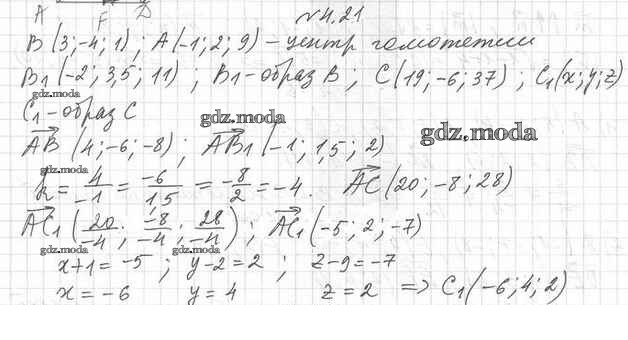 A F D
№4.21
B(3;-4;1); A(-1;2;9) – центр гомотетии
B₁(-2;3,5;11); B₁-образ B; C(19;-6;37); C₁(x;y;z)
gdz.moda
C₁-образ C
gdz.moda
gdz.moda
AB (4;-6;-8); AB₁(-1;1,5;2)
gdz.moda
k = 4/-1 = -6/1,5 = -8/2 = -4. AC(20;-8;28)
AC₁(20/-4; -8/-4; 28/-4); AC₁(-5;2;-7)
gdz.moda gdz.moda
x+1=-5; y-2=2; z-9=-7
x=-6 y=4 z=2 => C₁(-6;4;2)